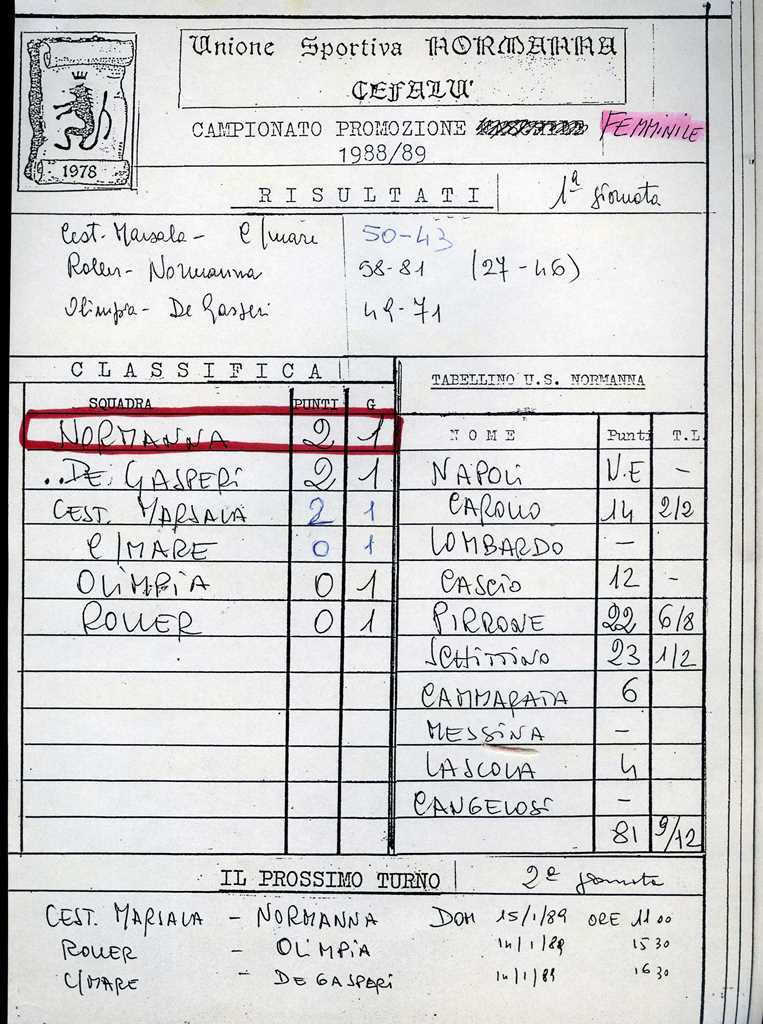 Unione Sportiva NORMANNA
CEFALU'
1978
CAMPIONATO PROMOZIONE FEMMINILE
1988/89
RISULTATI 1ª giornata
Cest. Marsala - C/mare 50-43
Roller - Normanna 58-81 (27-46)
Olimpia - De Gasperi 49-71
CLASSIFICA
SQUADRA PUNTI G
NORMANNA 2 1
DE GASPERI 2 1
CEST. MARSALA 2 1
C/MARE 0 1
OLIMPIA 0 1
ROLLER 0 1
TABELLINO U.S. NORMANNA
NOME Punti T.L.
NAPOLI N.E -
CAROLLO 14 2/2
LOMBARDO -
CASCIO 12 -
PIRRONE 22 6/8
SCHITTINO 23 1/2
CAMMARATA 6
MESSINA -
LASCOLA 4
CANGELOSI -
81 9/12
IL PROSSIMO TURNO 2ª giornata
CEST. MARSALA - NORMANNA DOM 15/1/89 ORE 11 00
ROLLER - OLIMPIA 14/1/89 15 30
C/MARE - DE GASPERI 14/1/89 16 30